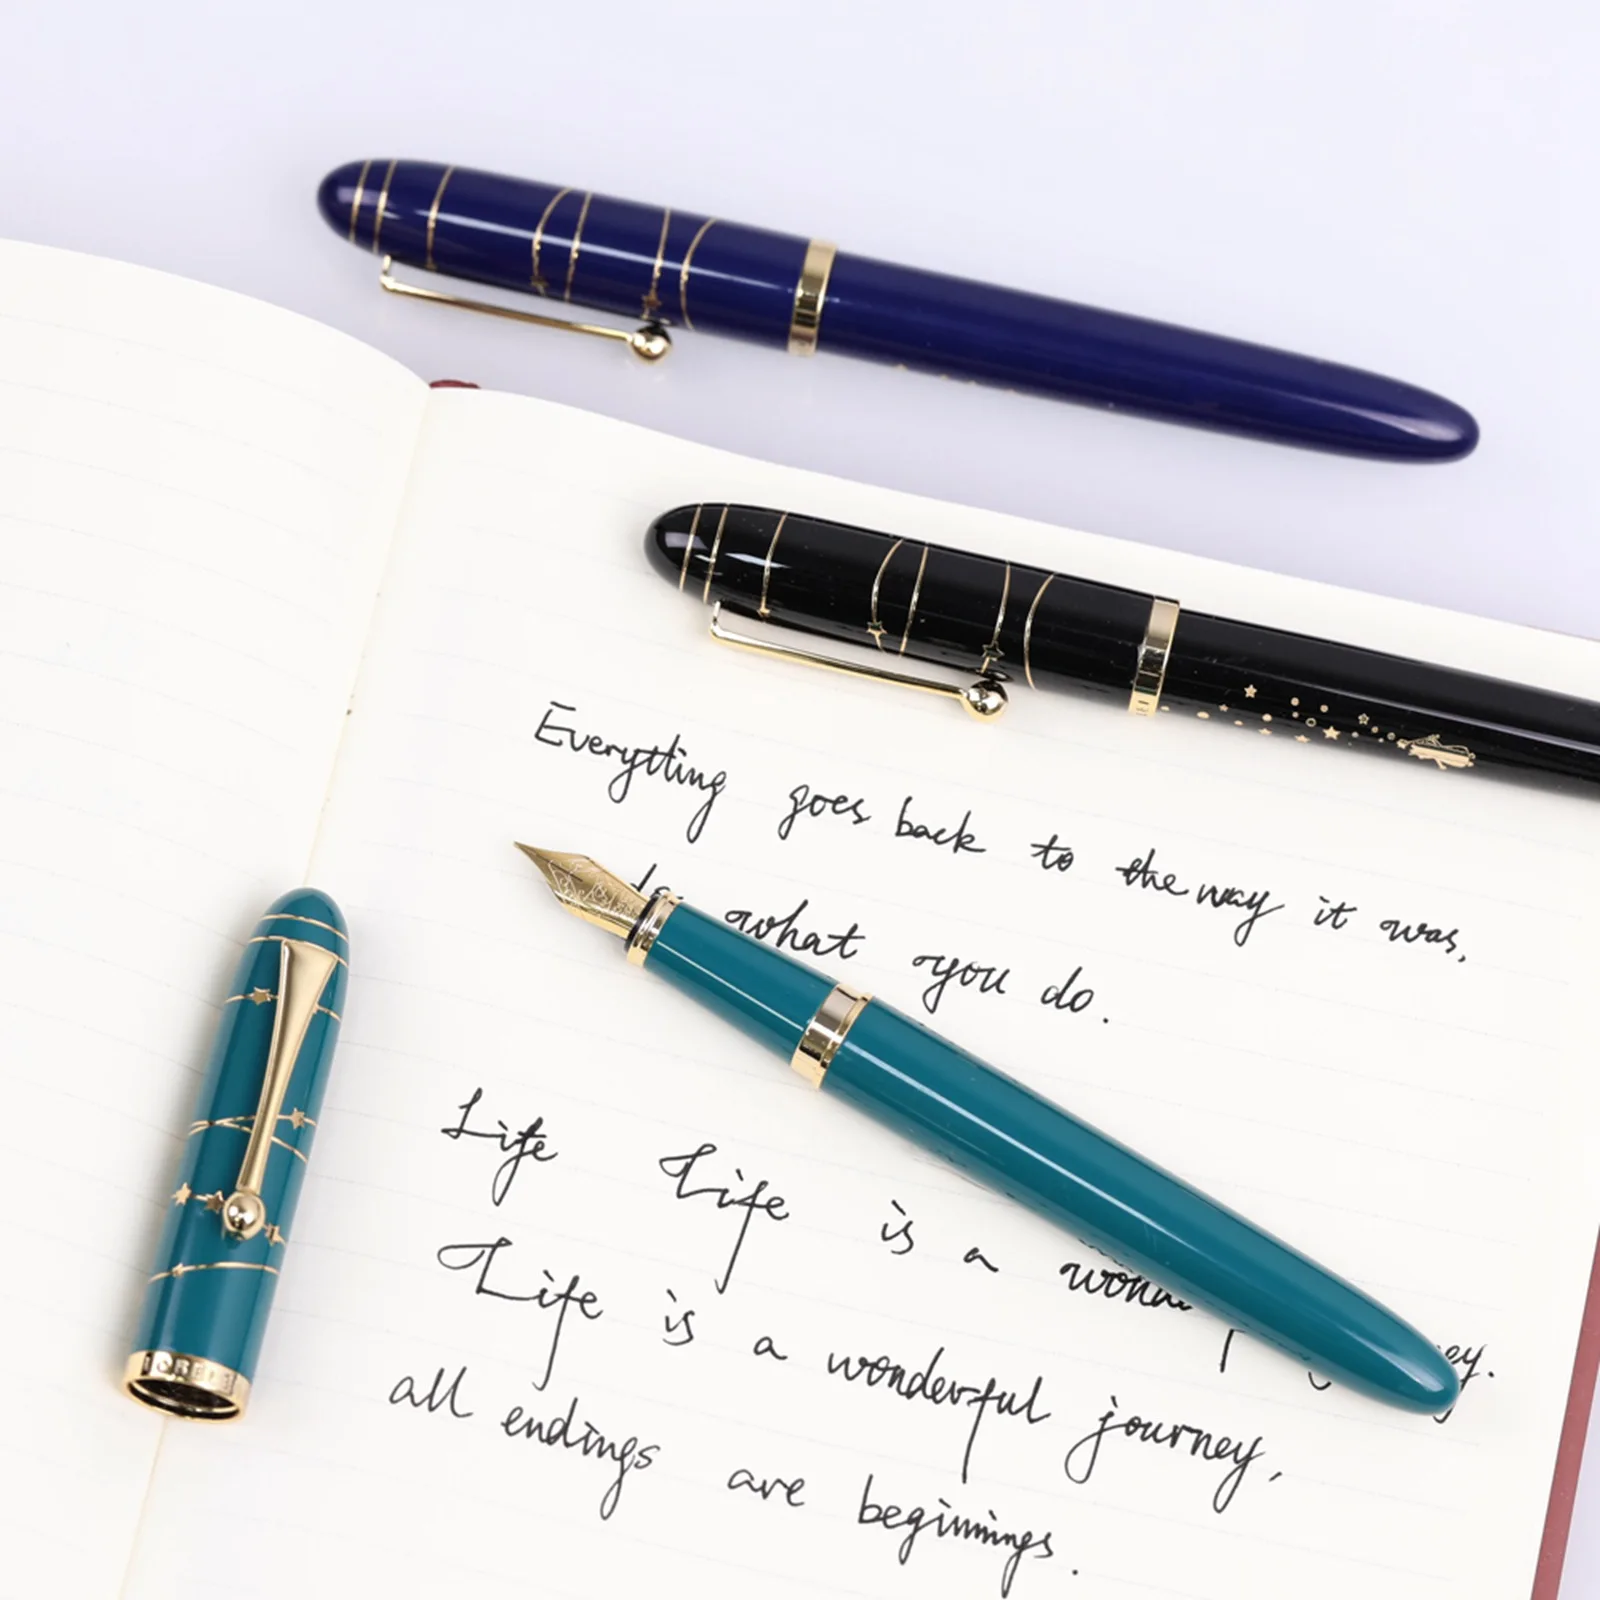 Everything goes back to the way it was,
Is what you do.
Life Life is a
Life is a wonderful journey,
all endings are beginnings.